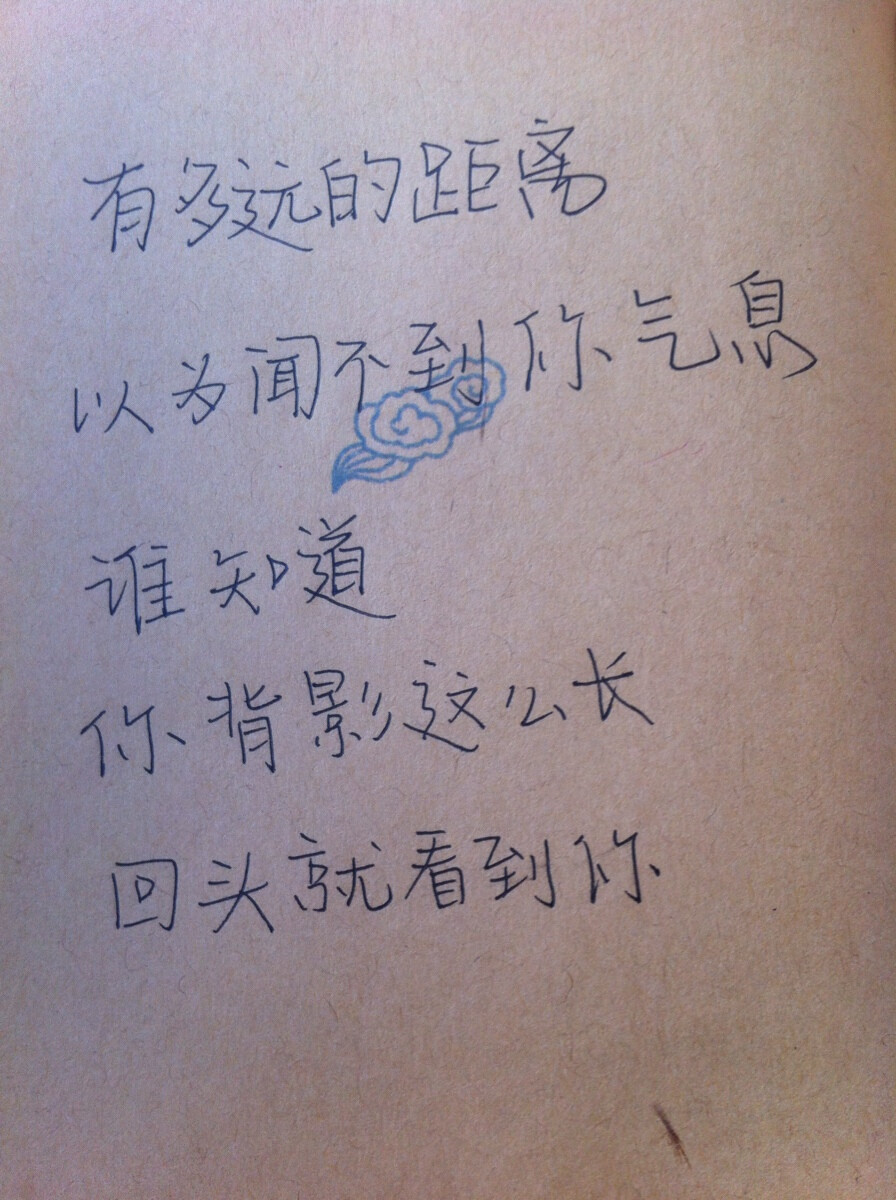 有多远的距离
以为闻不到你气息
谁知道
你背影这么长
回头就看到你